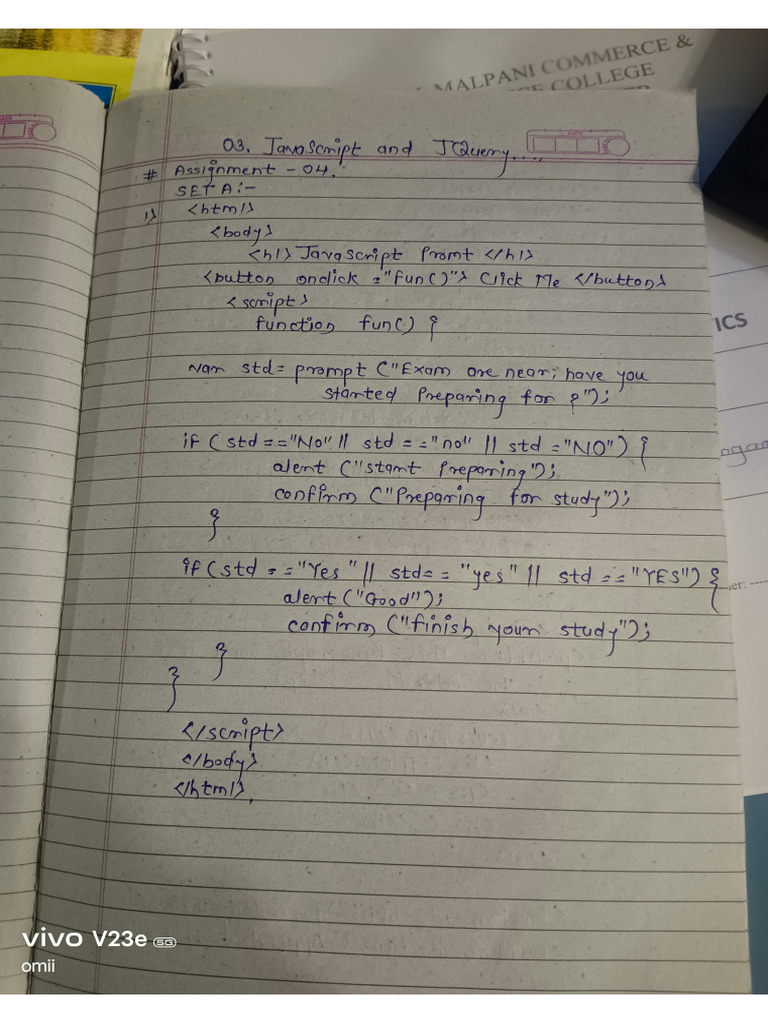 MALPANI COMMERCE &
CE COLLEGE
03. JavaScript and JQuery....
# Assignment - 04.
SET A:-
1) <html>
<body>
<h1> JavaScript Promt </h1>
<button onclick ="fun()"> Click Me </button>
<script>
function fun() {
Var std= prompt ("Exam are near; have you
started Preparing for ?");
if ( std=="No" || std = ="no" || std ="NO") {
alert ("start Preparing");
confirm ("Preparing for study");
}
if ( std = ="Yes" || std= = "yes" || std =="YES") {
alert ("Good");
confirm ("finish your study");
}
}
</script>
</body>
</html>.
ICS
vivo V23e 5G
omii